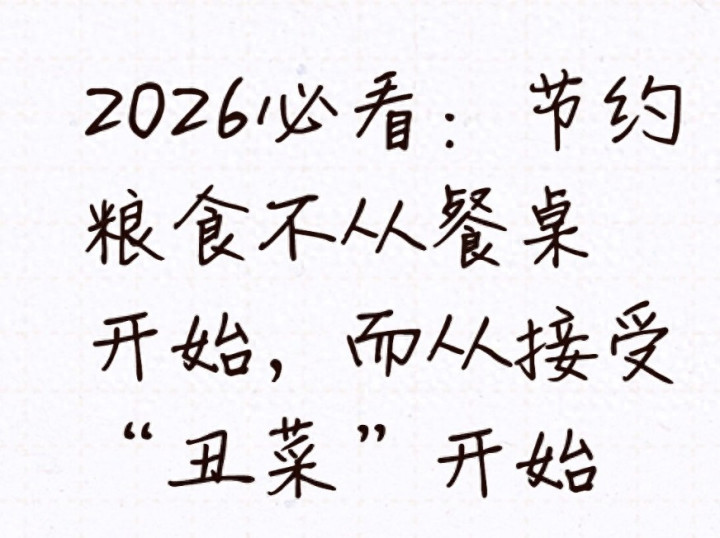 2026必看：节约
粮食不从餐桌
开始，而从接受
“丑菜”开始